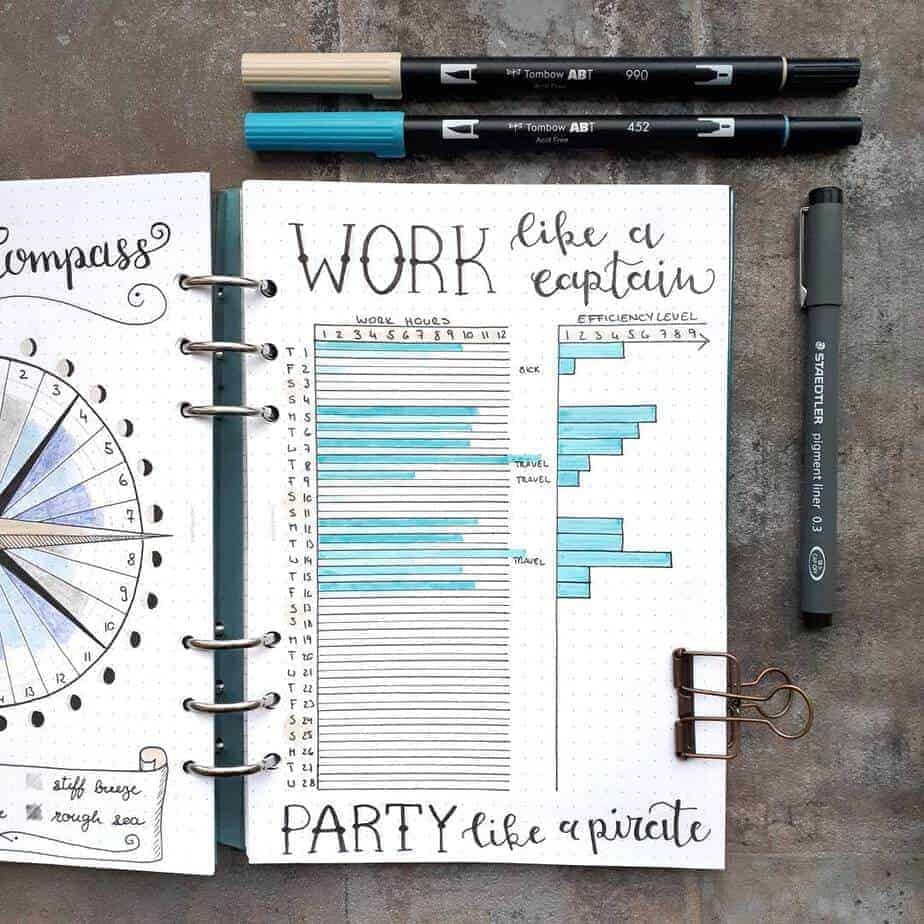 Tombow ABT 990
Acid Free
Tombow ABT 452
Acid Free
STAEDTLER pigment liner 0.3
Compass
2
3
4
5
6
7
8
9
10
11
12
13
stiff breeze
rough sea
WORK like a captain
WORK HOURS
1 2 3 4 5 6 7 8 9 10 11 12
EFFICIENCY LEVEL
1 2 3 4 5 6 7 8 9
T 1
F 2 SICK
S 3
S 4
M 5
T 6
W 7
T 8 TRAVEL
F 9 TRAVEL
S 10
S 11
M 12
T 13
W 14 TRAVEL
T 15
F 16
S 17
S 18
M 19
T 20
W 21
T 22
F 23
S 24
S 25
M 26
T 27
W 28
PARTY like a pirate